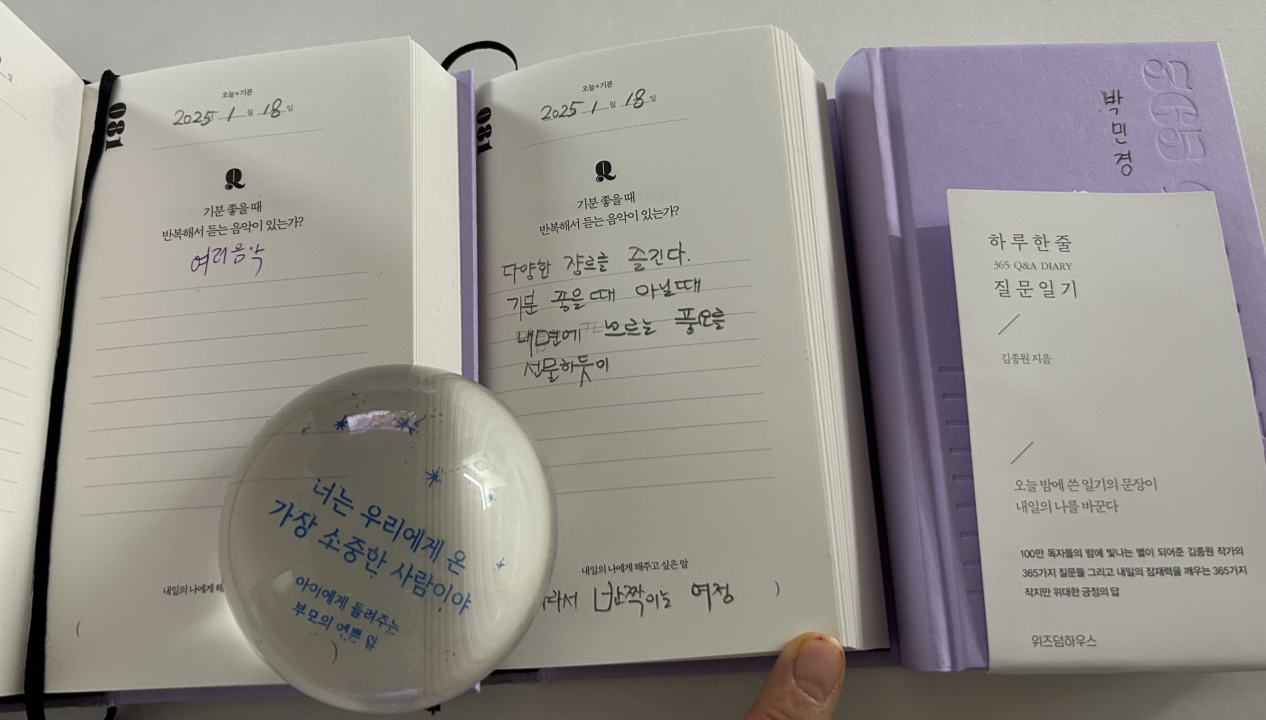 031
오늘×기분
2025 1 월 18 일
Q
기분 좋을 때
반복해서 듣는 음악이 있는가?
여러음악
내일의 나에게
(
너는 우리에게 온
가장 소중한 사람이야
아이에게 들려주는
부모의 예쁜 말
)
031
오늘×기분
2025 1 월 18 일
Q
기분 좋을 때
반복해서 듣는 음악이 있는가?
다양한 쟝르를 즐긴다.
기분 좋을때 아닐때
내면에 흐르는 풍요를
선물하듯이
내일의 나에게 해주고 싶은 말
반짝이는 여정 )
박민경
365
하루 한 줄
365 Q&A DIARY
질문 일기
김종원 지음
오늘 밤에 쓴 일기의 문장이
내일의 나를 바꾼다
100만 독자들의 밤에 빛나는 별이 되어준 김종원 작가의
365가지 질문들 그리고 내일의 잠재력을 깨우는 365가지
작지만 위대한 긍정의 답
위즈덤하우스